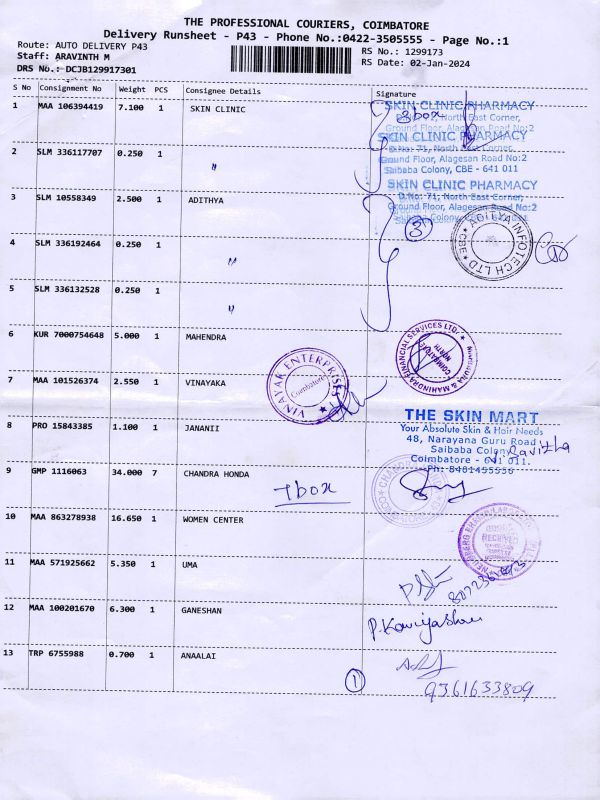 THE PROFESSIONAL COURIERS, COIMBATORE
Delivery Runsheet - P43 - Phone No.:0422-3505555 - Page No.:1
Route: AUTO DELIVERY P43
RS No.: 1299173
Staff: ARAVINTH M
RS Date: 02-Jan-2024
DRS No.: DCJB129917301
S No Consignment No Weight PCS Consignee Details Signature
1 MAA 106394419 7.100 1 SKIN CLINIC
3box
SKIN CLINIC PHARMACY
D.No: 71, North East Corner,
Ground Floor, Alagesan Road No:2
SKIN CLINIC PHARMACY
2 SLM 336117707 0.250 1 "
D.No: 71, North East Corner,
Ground Floor, Alagesan Road No:2
Saibaba Colony, CBE - 641 011
SKIN CLINIC PHARMACY
3 SLM 10558349 2.500 1 ADITHYA
D.No: 71, North East Corner,
Ground Floor, Alagesan Road No:2
3
ADITYA INFOTECH LTD
CBE
4 SLM 336192464 0.250 1 "
5 SLM 336132528 0.250 1 "
6 KUR 7000754648 5.000 1 MAHENDRA
MAHINDRA & MAHINDRA FINANCIAL SERVICES LTD.
COIMBATORE
NORTH
7 MAA 101526374 2.550 1 VINAYAKA
VINAYAK ENTERPRISES
Coimbatore
8 PRO 15843385 1.100 1 JANANII
THE SKIN MART
Your Absolute Skin & Hair Needs
48, Narayana Guru Road
Saibaba Colony
Coimbatore - 641 011.
Ph: 8401455556
9 GMP 1116063 34.000 7 CHANDRA HONDA
7box
10 MAA 863278938 16.650 1 WOMEN CENTER
RECEIVED
11 MAA 571925662 5.350 1 UMA
12 MAA 100201670 6.300 1 GANESHAN
13 TRP 6755988 0.700 1 ANAALAI
1
9361633809